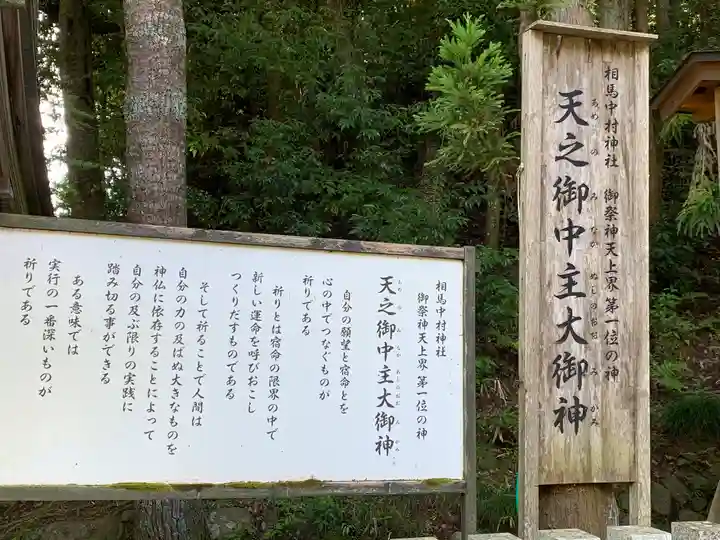 相馬中村神社
御祭神天上界 第一位の神
天之御中主大御神
自分の願望と宿命とを
心の中でつなぐものが
祈りである
祈りとは宿命の限界の中で
新しい運命を呼びおこし
つくりだすものである
そして祈ることで人間は
自分の力の及ばぬ大きなものを
神仏に依存することによって
自分の及ぶ限りの実践に
踏み切る事ができる
ある意味では
実行の一番深いものが
祈りである
相馬中村神社 御祭神天上界 第一位の神
天之御中主大御神
あめ の み なか ぬしのおお み かみ